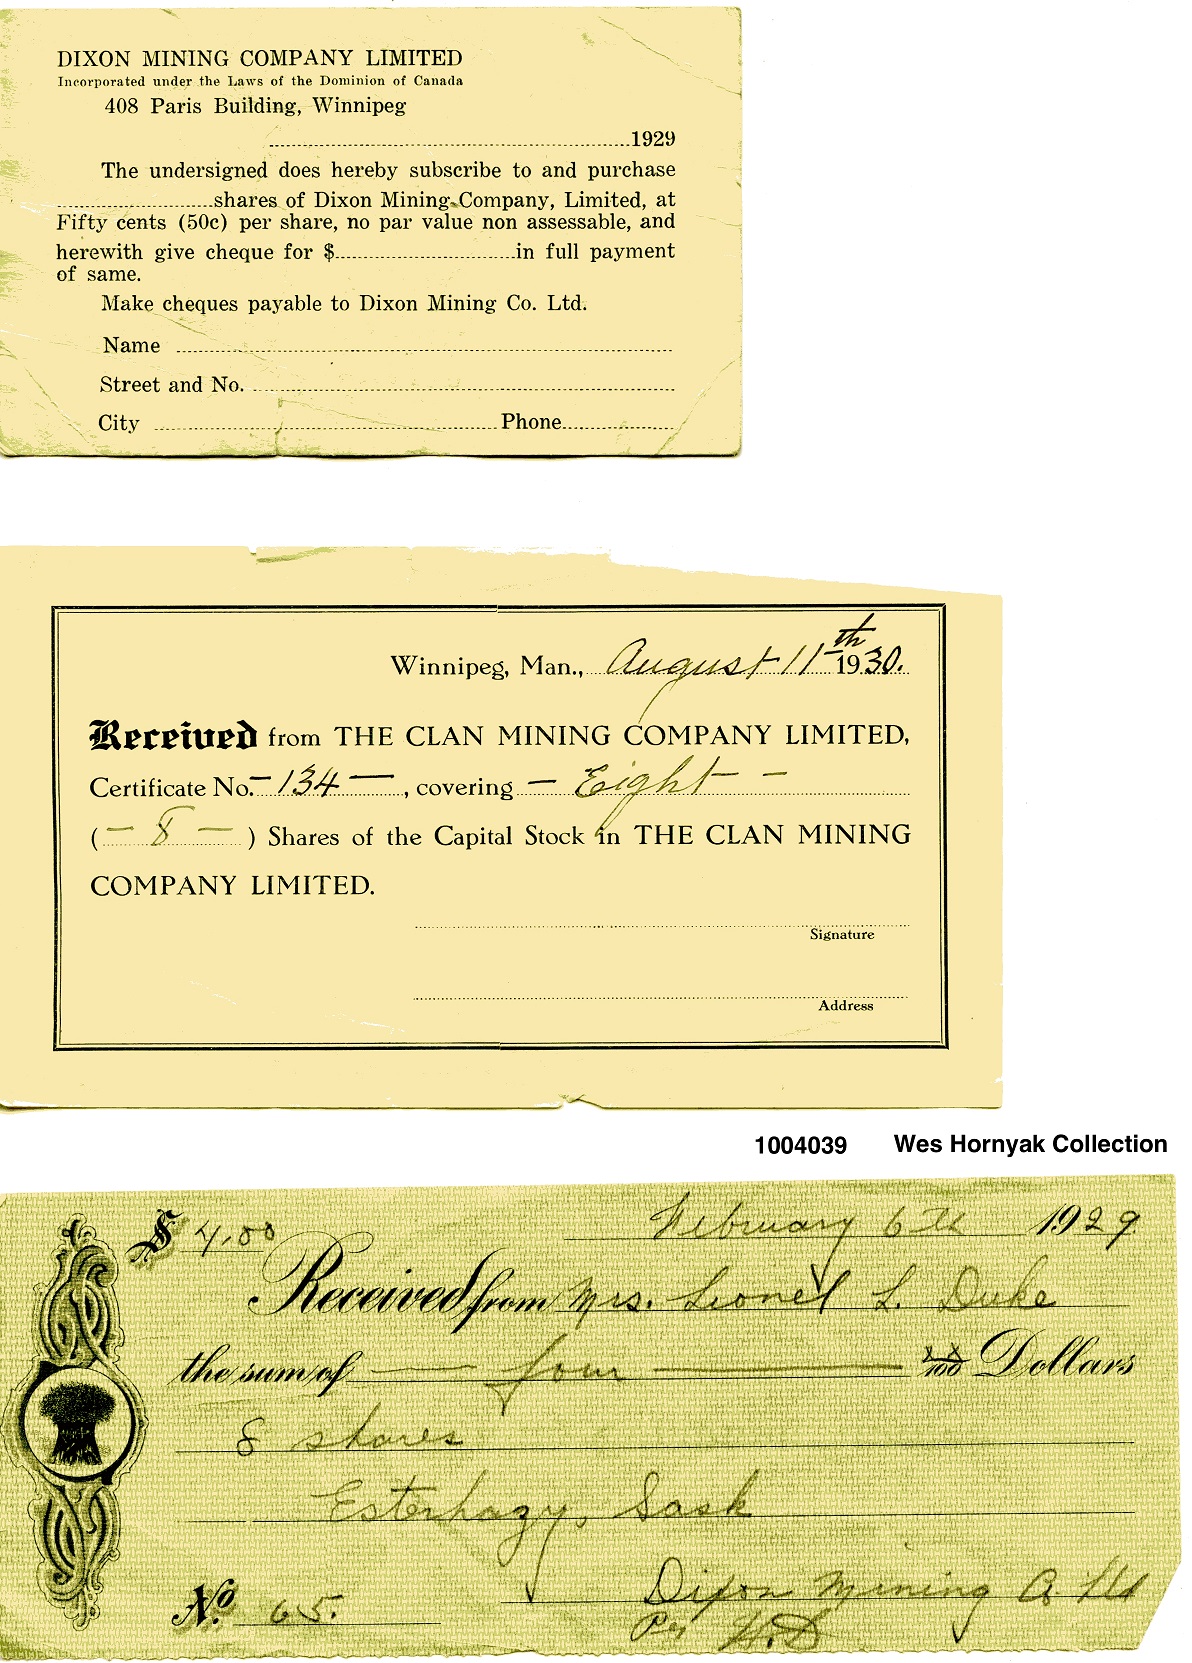 DIXON MINING COMPANY LIMITED
Incorporated under the Laws of the Dominion of Canada
408 Paris Building, Winnipeg
1929
The undersigned does hereby subscribe to and purchase
shares of Dixon Mining Company, Limited, at
Fifty cents (50c) per share, no par value non assessable, and
herewith give cheque for $ in full payment
of same.
Make cheques payable to Dixon Mining Co. Ltd.
Name
Street and No.
City Phone
Winnipeg, Man., August 11th 1930.
Received from THE CLAN MINING COMPANY LIMITED,
Certificate No. - 134 -, covering - Eight -
( - 8 - ) Shares of the Capital Stock in THE CLAN MINING
COMPANY LIMITED.
Signature
Address
1004039 Wes Hornyak Collection
$ 4.00 February 6th 1929
Received from Mrs. Lionel L. Duke
the sum of four xx/100 Dollars
8 shares
Esterhazy, Sask
No. 65. Dixon Mining Co Ltd
Per H.D